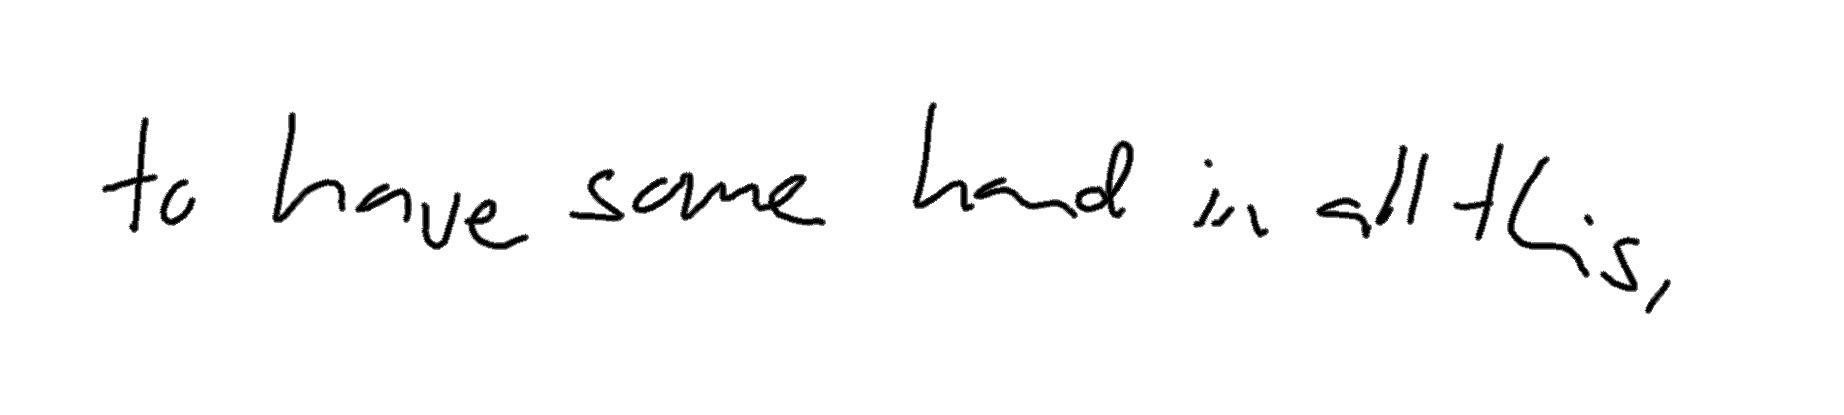 to have some hand in all this,